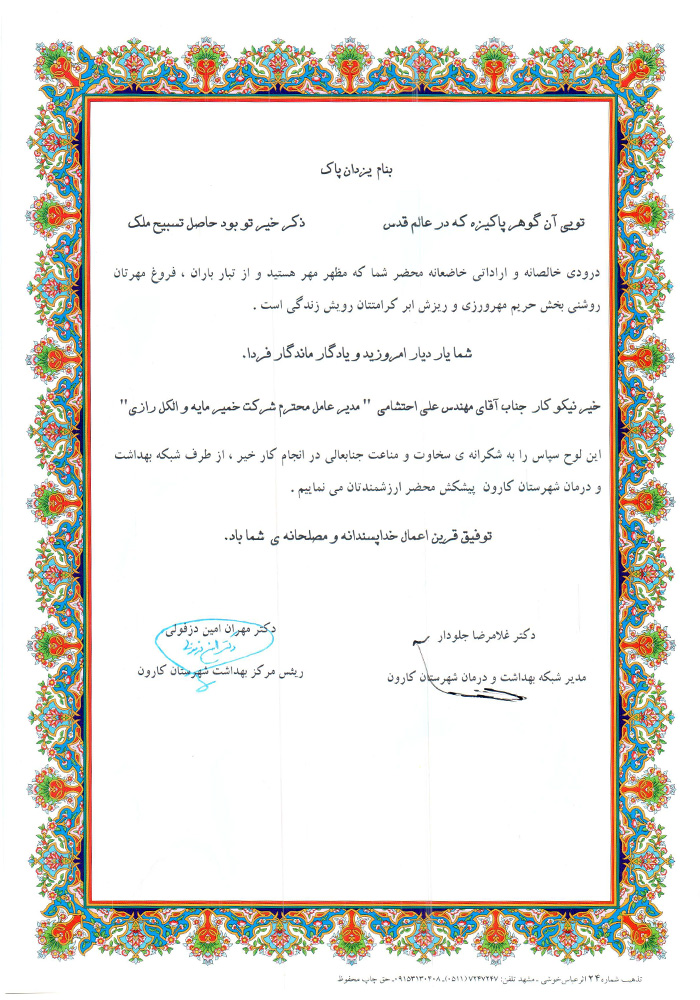 بنام یزدان پاک
تویی آن گوهر پاکیزه که در عالم قدس ذکر خیر تو بود حاصل تسبیح ملک
درودی خالصانه و اراداتی خاضعانه محضر شما که مظهر مهر هستید و از تبار باران ، فروغ مهرتان
روشنی بخش حریم مهرورزی و ریزش ابر کرامتتان رویش زندگی است .
شما یار دیار امروزید و یادگار ماندگار فردا.
خیر نیکو کار جناب آقای مهندس علی احتشامی " مدیر عامل محترم شرکت خمیر مایه و الکل رازی"
این لوح سپاس را به شکرانه ی سخاوت و مناعت جنابعالی در انجام کار خیر ، از طرف شبکه بهداشت
و درمان شهرستان کارون پیشکش محضر ارزشمندتان می نماییم .
توفیق قرین اعمال خداپسندانه و مصلحانه ی شما باد.
دکتر غلامرضا جلودار
مدیر شبکه بهداشت و درمان شهرستان کارون
دکتر مهران امین دزفولی
رئس مرکز بهداشت شهرستان کارون
تذهیب شماره ۲۴ اثر عباس خوشی - مشهد تلفن: ۷۲۴۷۲۴۷ (۰۵۱۱)، ۰۹۱۵۳۱۳۰۴۰۸ حق چاپ محفوظ